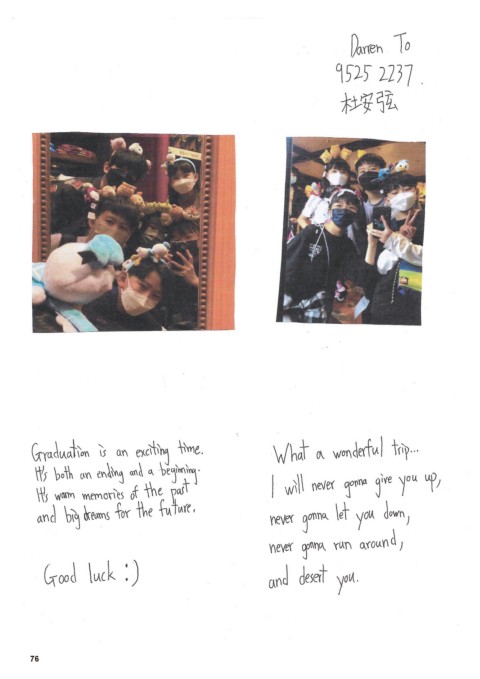 Darren To
9525 2237.
杜安弦
Graduation is an exciting time.
It's both an ending and a beginning.
It's warm memories of the past
and big dreams for the future.
Good luck :)
What a wonderful trip...
I will never gonna give you up,
never gonna let you down,
never gonna run around,
and desert you.
76